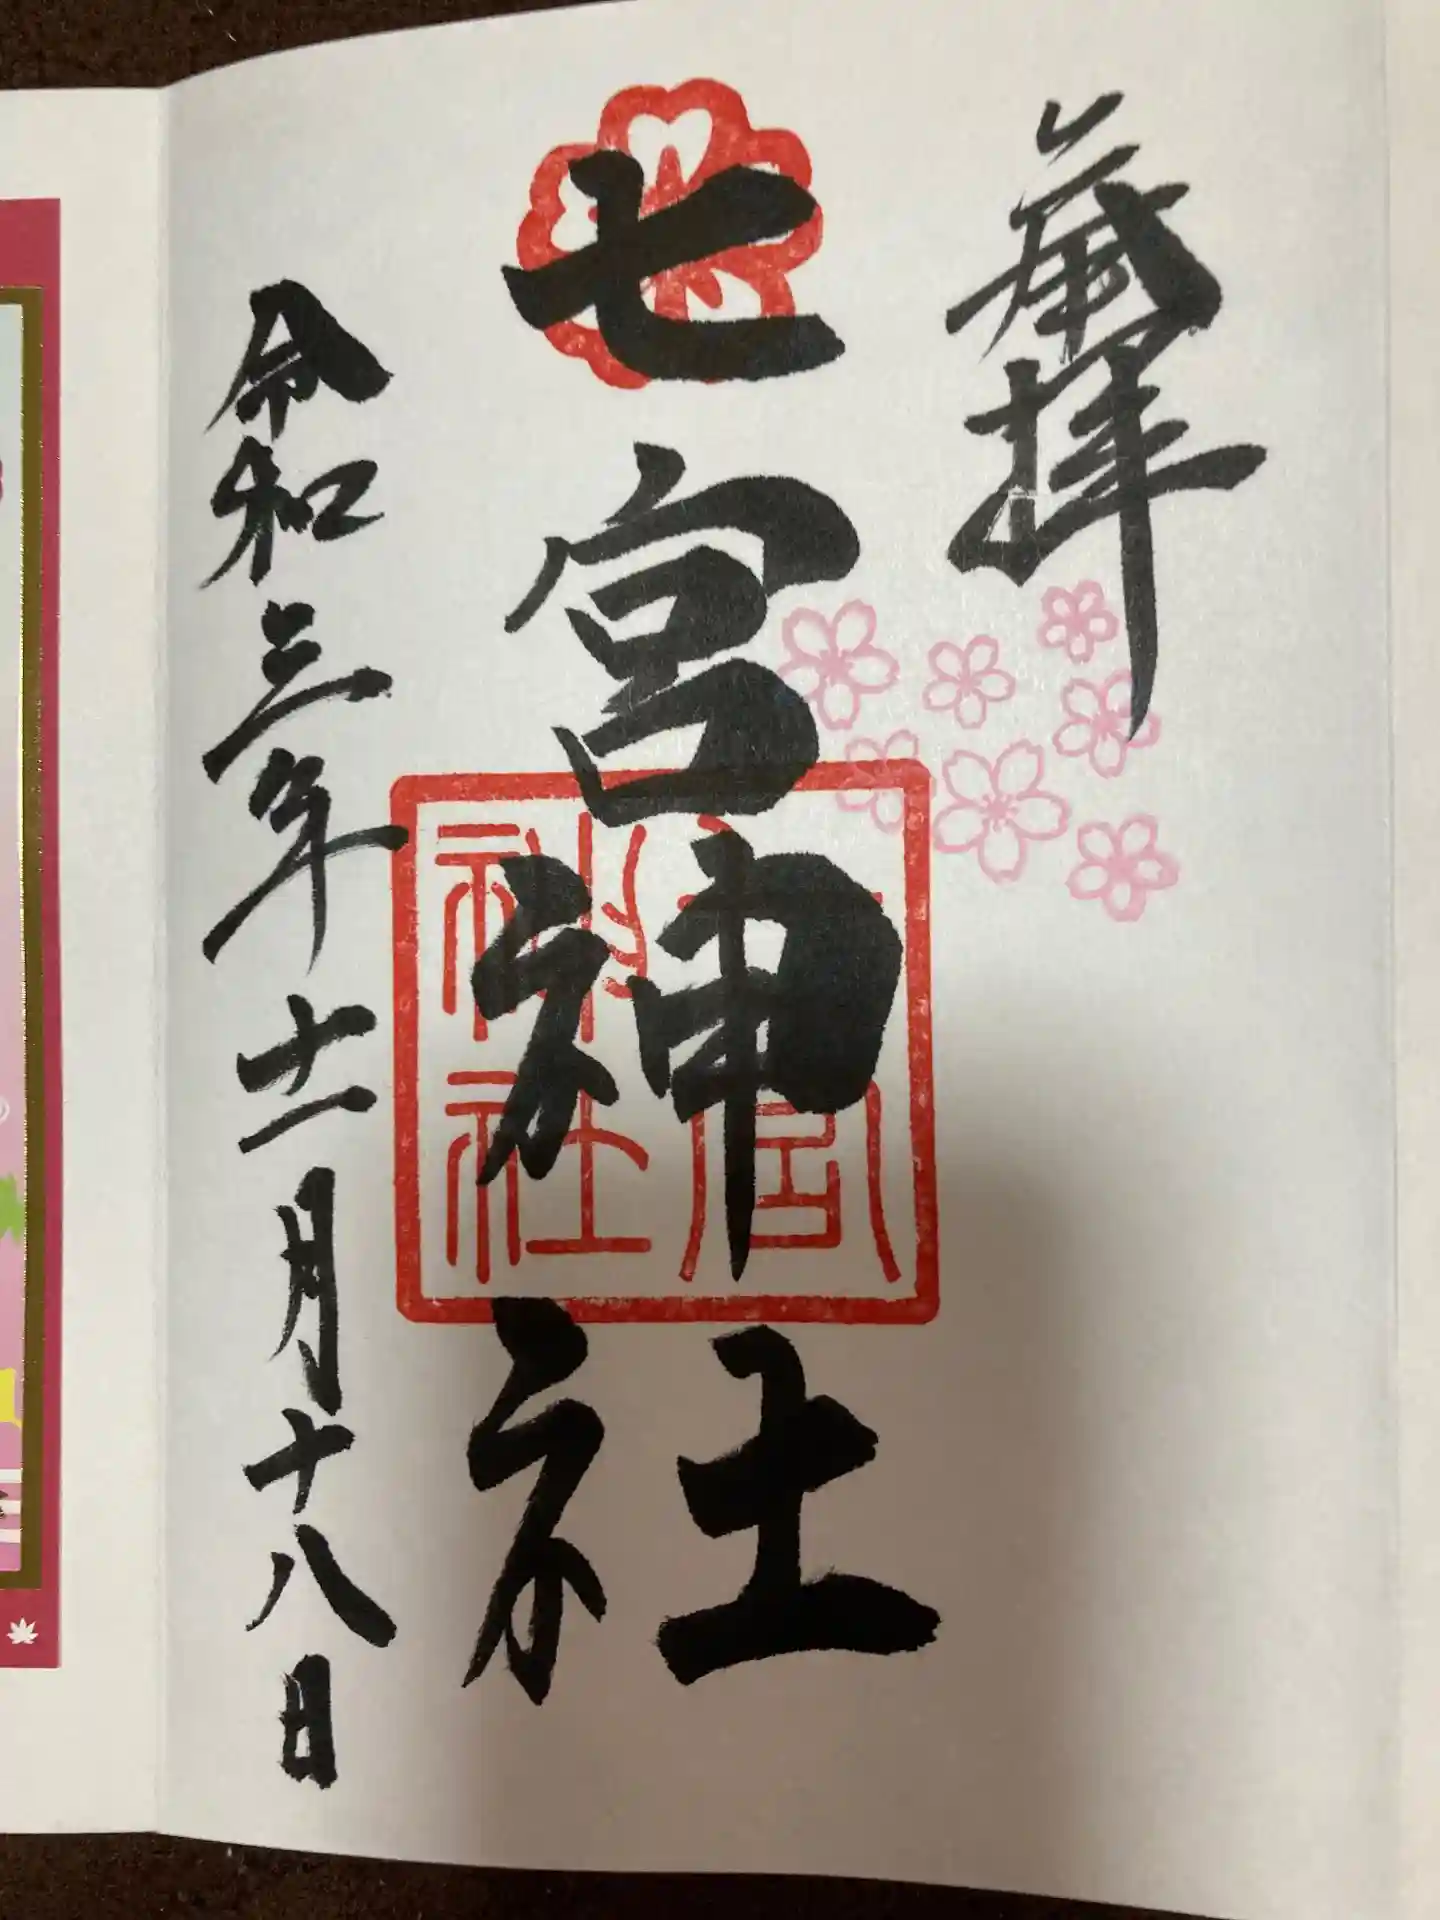 奉拝
七宮神社
七宮神社
令和三年十一月十八日